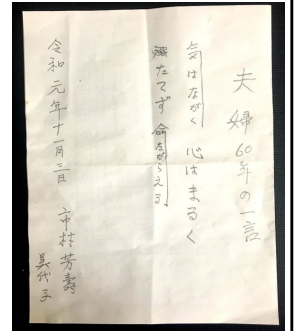 夫婦60年の一言
気はながく 心はまるく
腹たてず 命ながらえる
令和元年十一月三日 市村芳壽
美代子